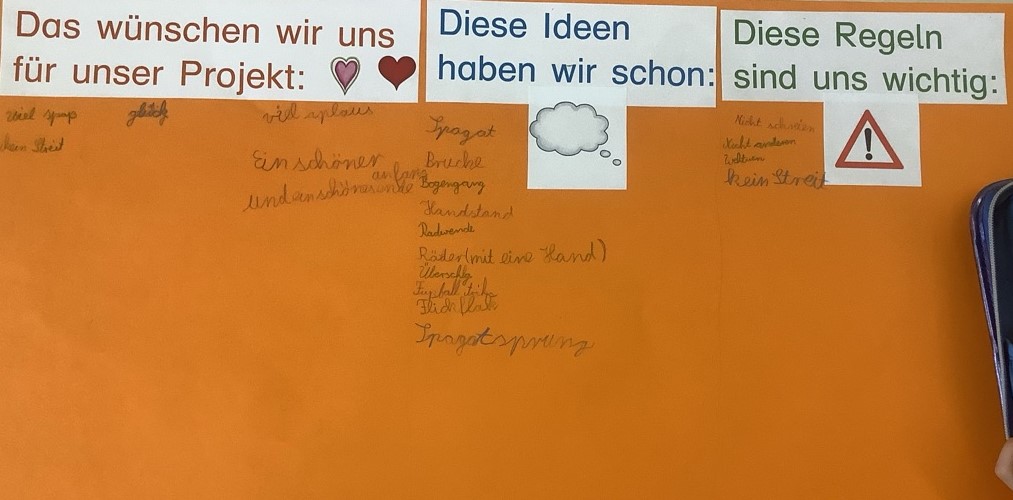 Das wünschen wir uns
für unser Projekt:
viel spap
glück
viel aplaus
kein Streit
Ein schöner
anfang
und ein schönes ende
Diese Ideen
haben wir schon:
Spagat
Brücke
Bogengang
Handstand
Radwende
Räder (mit eine Hand)
Überschlg
Fußball
Flickflack
Spagatsprung
Diese Regeln
sind uns wichtig:
Nicht schreien
Nicht anderen
kein Streit